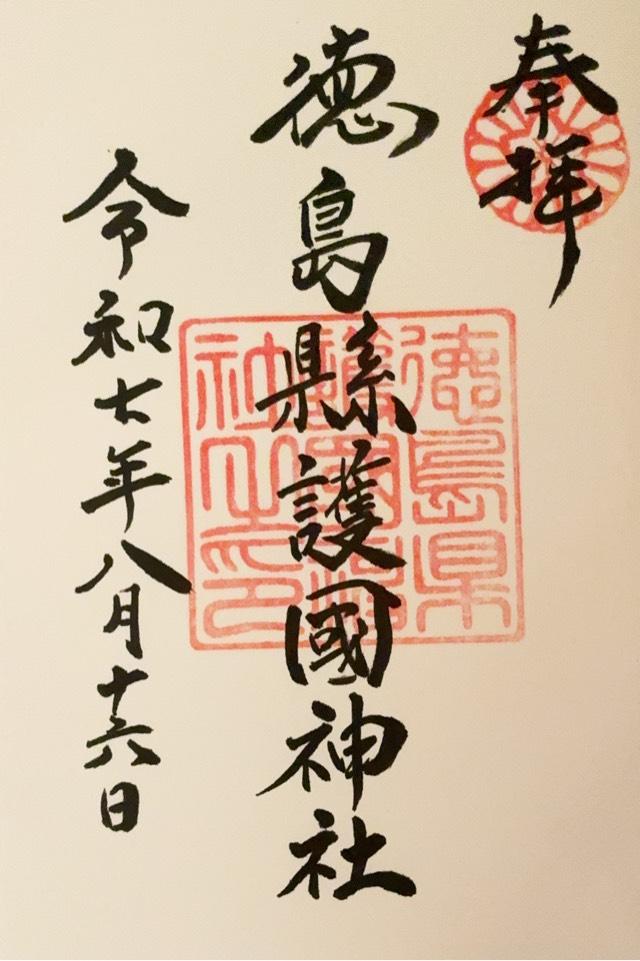 奉拝
徳島縣護國神社
徳島県
護國神
社之印
令和七年八月十六日